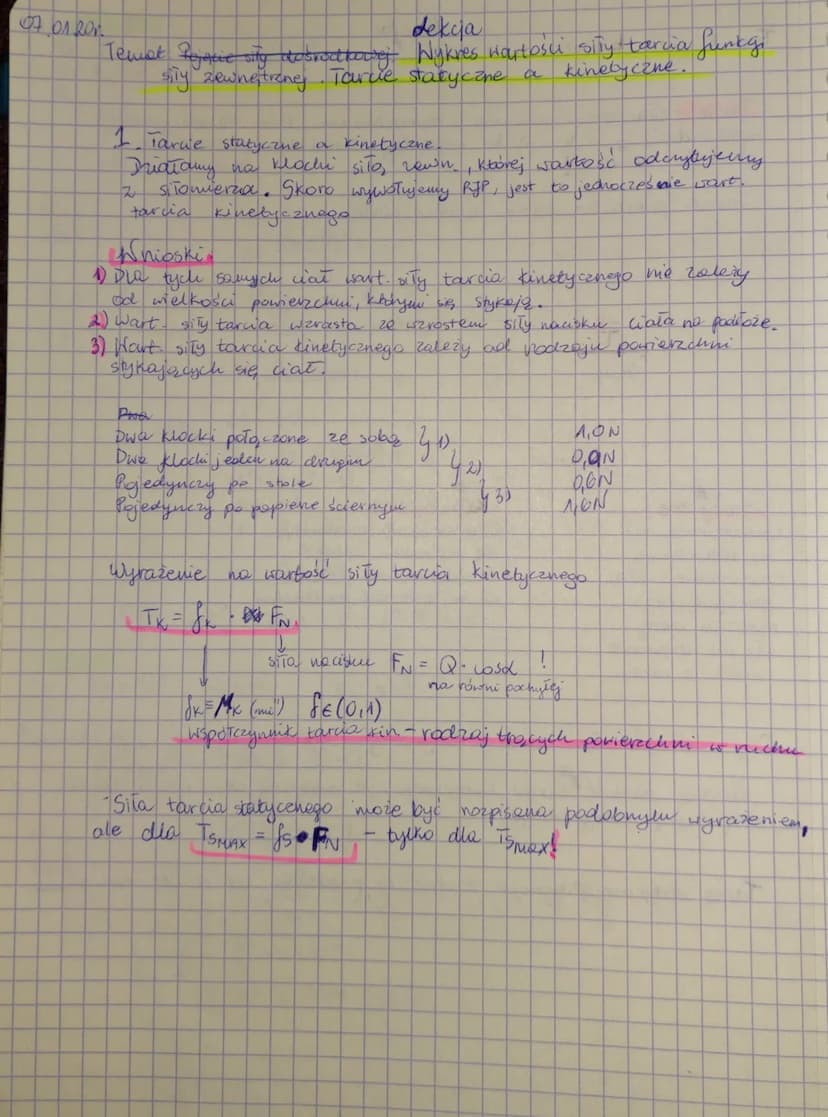 07.01.20r.
Lekcja
Temat Pojęcie siły dośrodkowej Wykres wartości siły tarcia funkcji
siły zewnętrznej. Tarcie statyczne a kinetyczne.
1. Tarcie statyczne a kinetyczne.
Działamy na klocki siłą zewn., której wartość odczytujemy
z siłomierza. Skoro wywołujemy RJP, jest to jednocześnie wart.
tarcia kinetycznego
Wnioski
1) Dla tych samych ciał wart. siły tarcia kinetycznego nie zależy
od wielkości powierzchni, którymi się stykają.
2) Wart. siły tarcia wzrasta ze wzrostem siły nacisku ciała na podłoże.
3) Wart. siły tarcia kinetycznego zależy od rodzaju powierzchni
stykających się ciał.
Dwa
Dwa klocki połączone ze sobą } 1) 1,0N
Dwa klocki jeden na drugim } 2) 0,9N
Pojedynczy po stole } 3) 0,6N
Pojedynczy po papierze ściernym 1,6N
Wyrażenie na wartość siły tarcia kinetycznego
T_K = f_K · F_N
siła nacisku F_N = Q · cosα !
na równi pochyłej
f_K = μ_K (mi") f ∈ (0,1)
współczynnik tarcia kin. – rodzaj trących powierzchni w ruchu
Siła tarcia statycznego może być rozpisana podobnym wyrażeniem,
ale dla T_SMAX = f_S · F_N – tylko dla T_Smax!